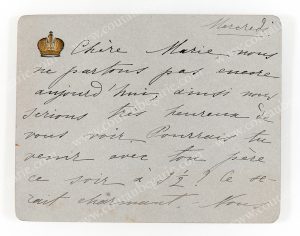 Mercredi
Chère Marie nous
ne partons pas encore
aujourd'hui ainsi nous
serions très heureux de
vous voir. Pourrais tu
venir avec ton père
ce soir à 9½? Ce se-
rait charmant. Nous